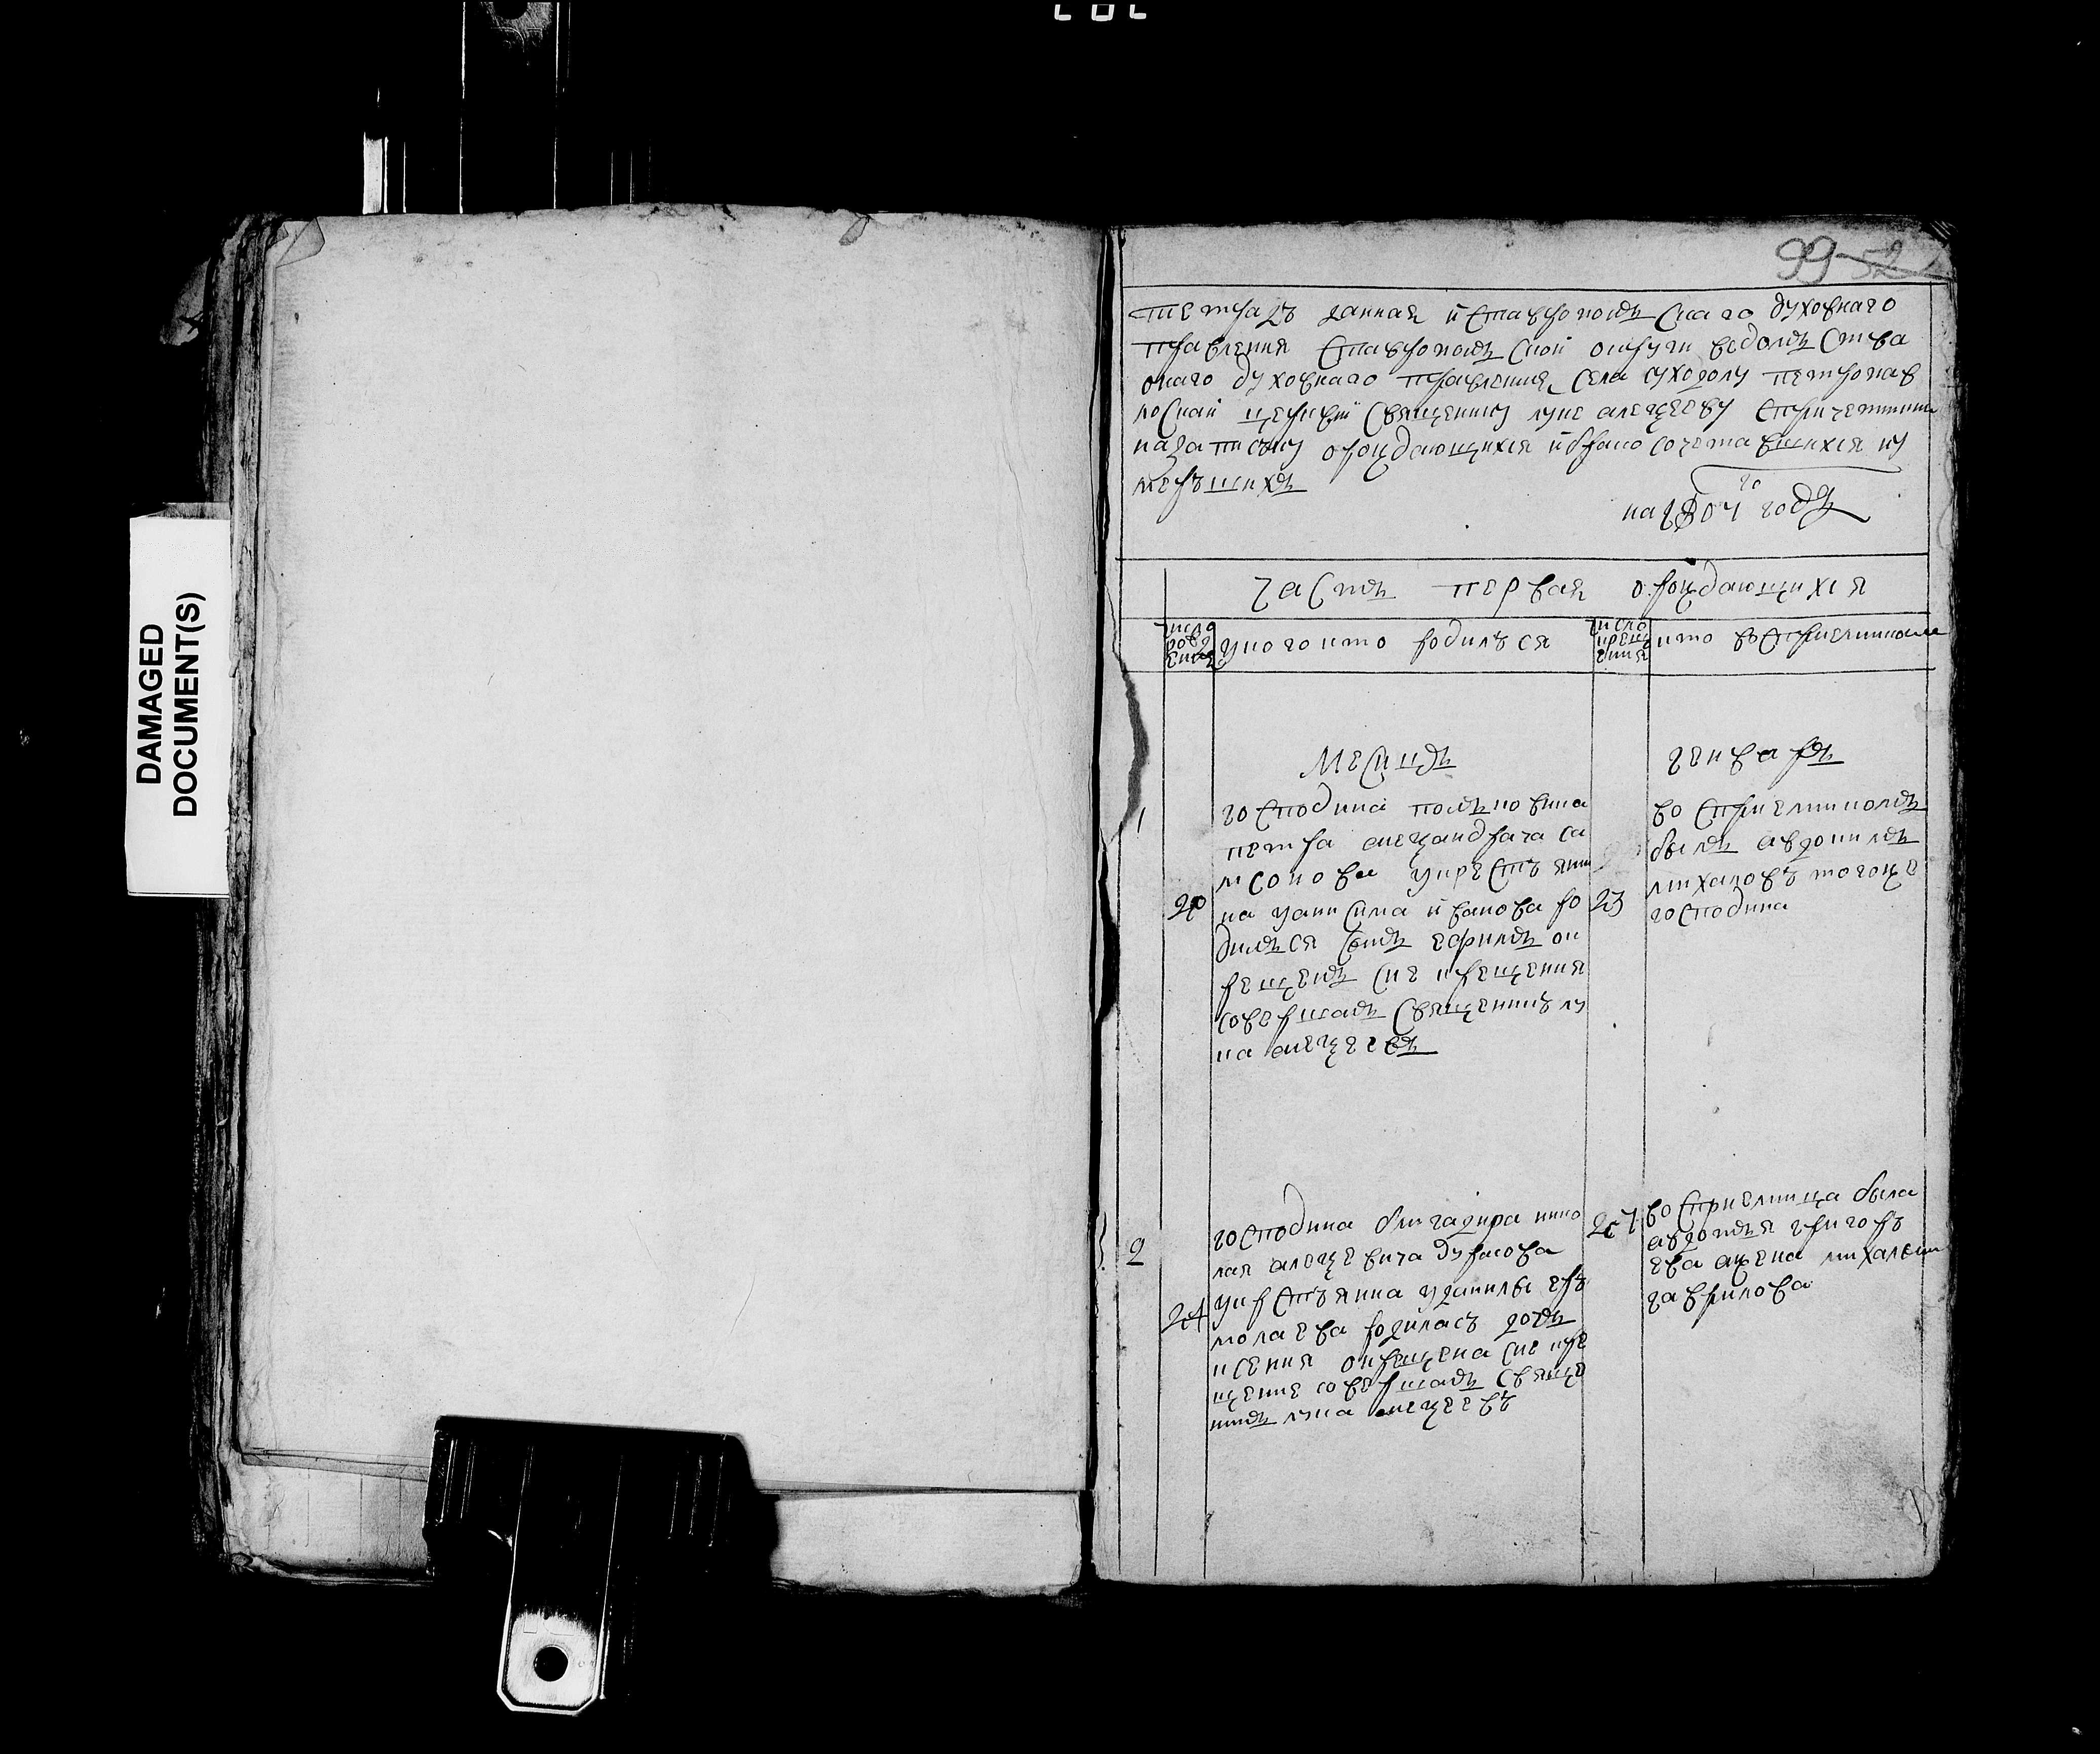 DAMAGED
DOCUMENT(S)
99 52
тетрадь данная из ставропольскаго духовнаго
правления ставропольской округи ведомства
онаго духовнаго правления села суходолу петропав
лоской церкви священнику луке алексееву спричетники
на записку о рождающихся и бракосочетавшихся и у
мерьших
на 1804 го годъ
часть первая о рождающихся
число рожд ения
у кого кто родился
число креще ния
кто восприемником
Месицъ
генварь
1
20
господина полковника
петра александрача са
мсонова у крестьяни
на у анисима иванова ро
дился сынъ кирилъ ок
рещенъ сие крещения
совершалъ священникъ лу
ка алексеевъ
23
восприемникомъ
былъ авдокимъ
михаловъ тогоже
господина
2
24
господина бригадира нико
лая алексеевича дурасова
у крстьянина у данилы ер
молаева родилась дочь
ксения окрещена сие кре
щение совершалъ свяще
никъ лука алексеевъ
27
восприемница была
авдотья григорь
ева жена михалеи
гаврилова